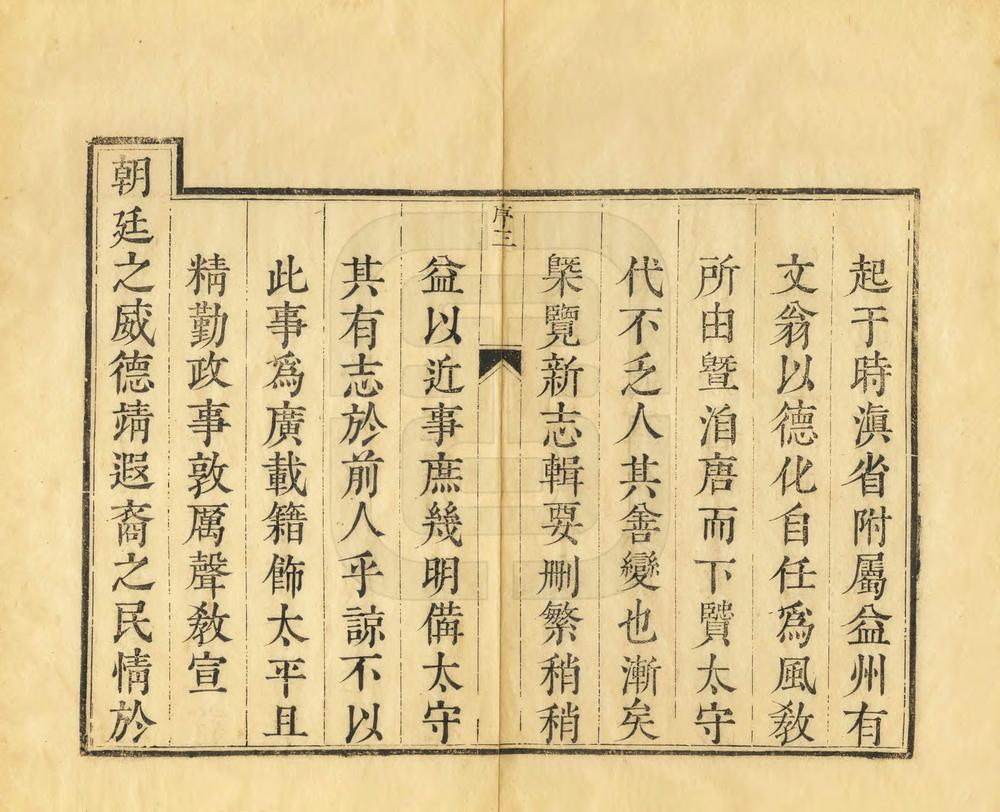 起于時滇省附屬益州有
文翁以德化自任爲風敎
所由曁洎唐而下賢太守
代不乏人其善變也漸矣
槩覽新志輯要刪繁稍稍
序三
益以近事庶幾明備太守
其有志於前人乎諒不以
此事爲廣載籍飾太平且
精勤政事敦厲聲敎宣
朝廷之威德靖遐裔之民情於